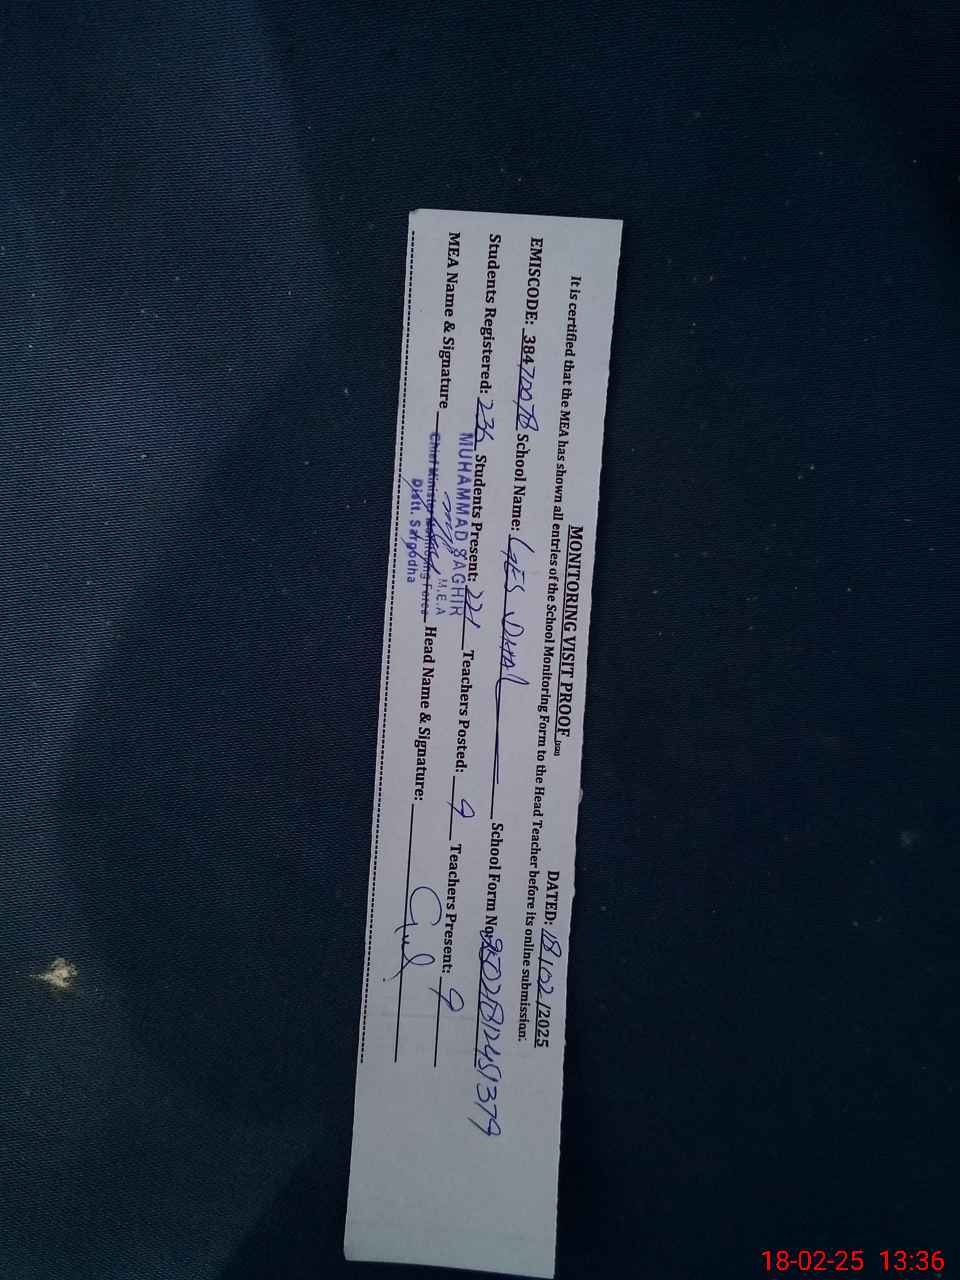 MONITORING VISIT PROOF DATED: 18/02/2025
It is certified that the MEA has shown all entries of the School Monitoring Form to the Head Teacher before its online submission.
EMISCODE: 38470078 School Name: GES School Form No:
Students Registered: 236 Students Present: 221 Teachers Posted: 9 Teachers Present: 9
MUHAMMAD SAGHIR
M.E.A
MEA Name & Signature Chief Minister Monitoring Force Head Name & Signature: Gul
Distt. Sargodha
18-02-25 13:36